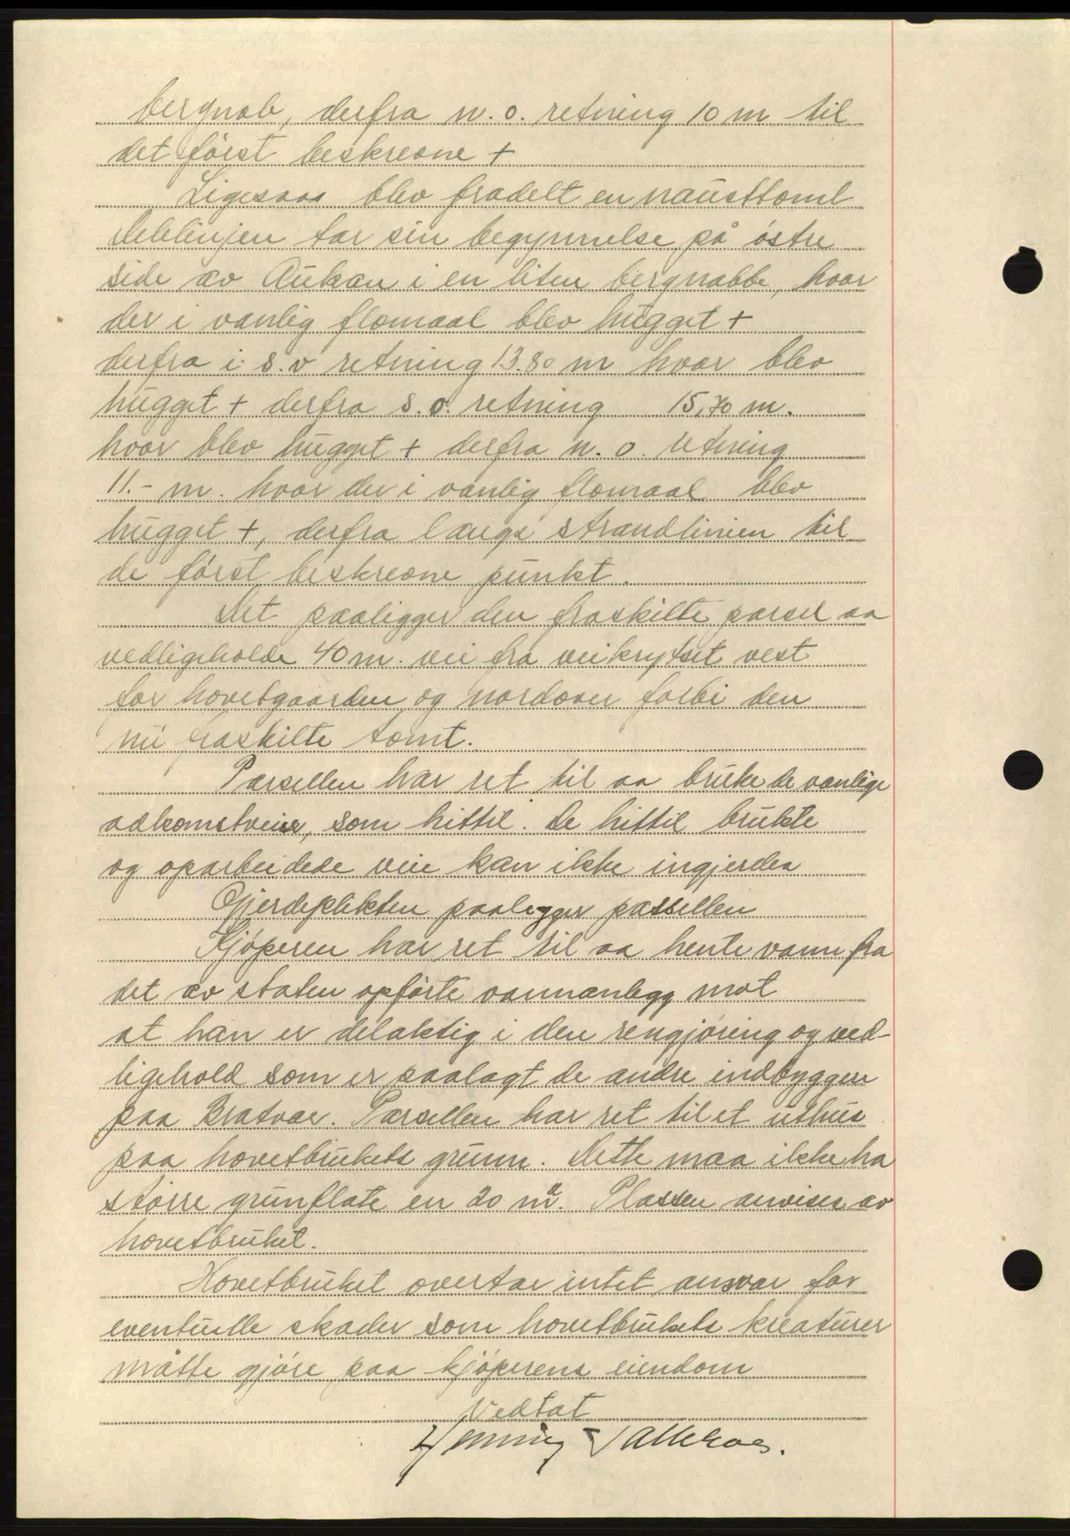 bergnab, derfra n. o. retning 10 m til
det først beskrevne +
Ligesaa blev fradelt en nausttomt
Delelinjen tar sin begynnelse på østre
side av Aukan i en liten bergnabbe, hvor
der i vanlig flomaal blev hugget +
derfra i s. v retning 13.80 m hvor blev
hugget + derfra s. o. retning 15,70 m.
hvor blev hugget + derfra n. o. retning
11.- m. hvor der i vanlig flomaal blev
hugget +, derfra langs strandlinien til
de først beskrevne punkt.
Det paaligger den fraskilte parsel aa
vedligeholde 40 m. vei fra veikrysset vest
for hovetgaarden og nordover forbi den
nu fraskilte tomt.
Parsellen har ret til aa bruke de vanlige
adkomstveier, som hittil. De hittil brukte
og oparbeidede veie kan ikke ingjerdes
Gjerdeplikten paaligger parsellen
Kjøperen har ret til aa hente vann fra
det av staten opførte vannanlegg mot
at han er delaktig i den rengjøring og ved-
ligehold som er paalagt de andre indbyggere
paa Bratvær. Parsellen har ret til et uthus
paa hovetbrukets grunn. Dette maa ikke ha
større grunflate en 20 m². Plassen anvises av
hovetbruket.
Hovetbruket overtar intet ansvar for
eventuelle skader som hovetbrukets kreaturer
måtte gjøre paa kjøperens eiendom
Vedtat
Henning